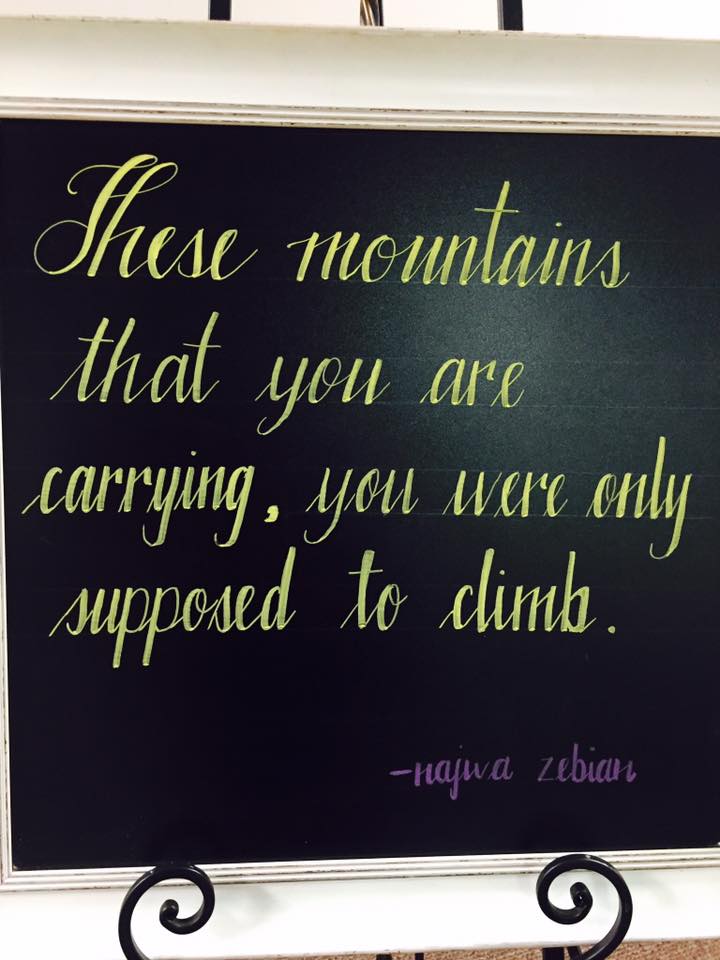 These mountains
that you are
carrying, you were only
supposed to climb.
-najwa zebian